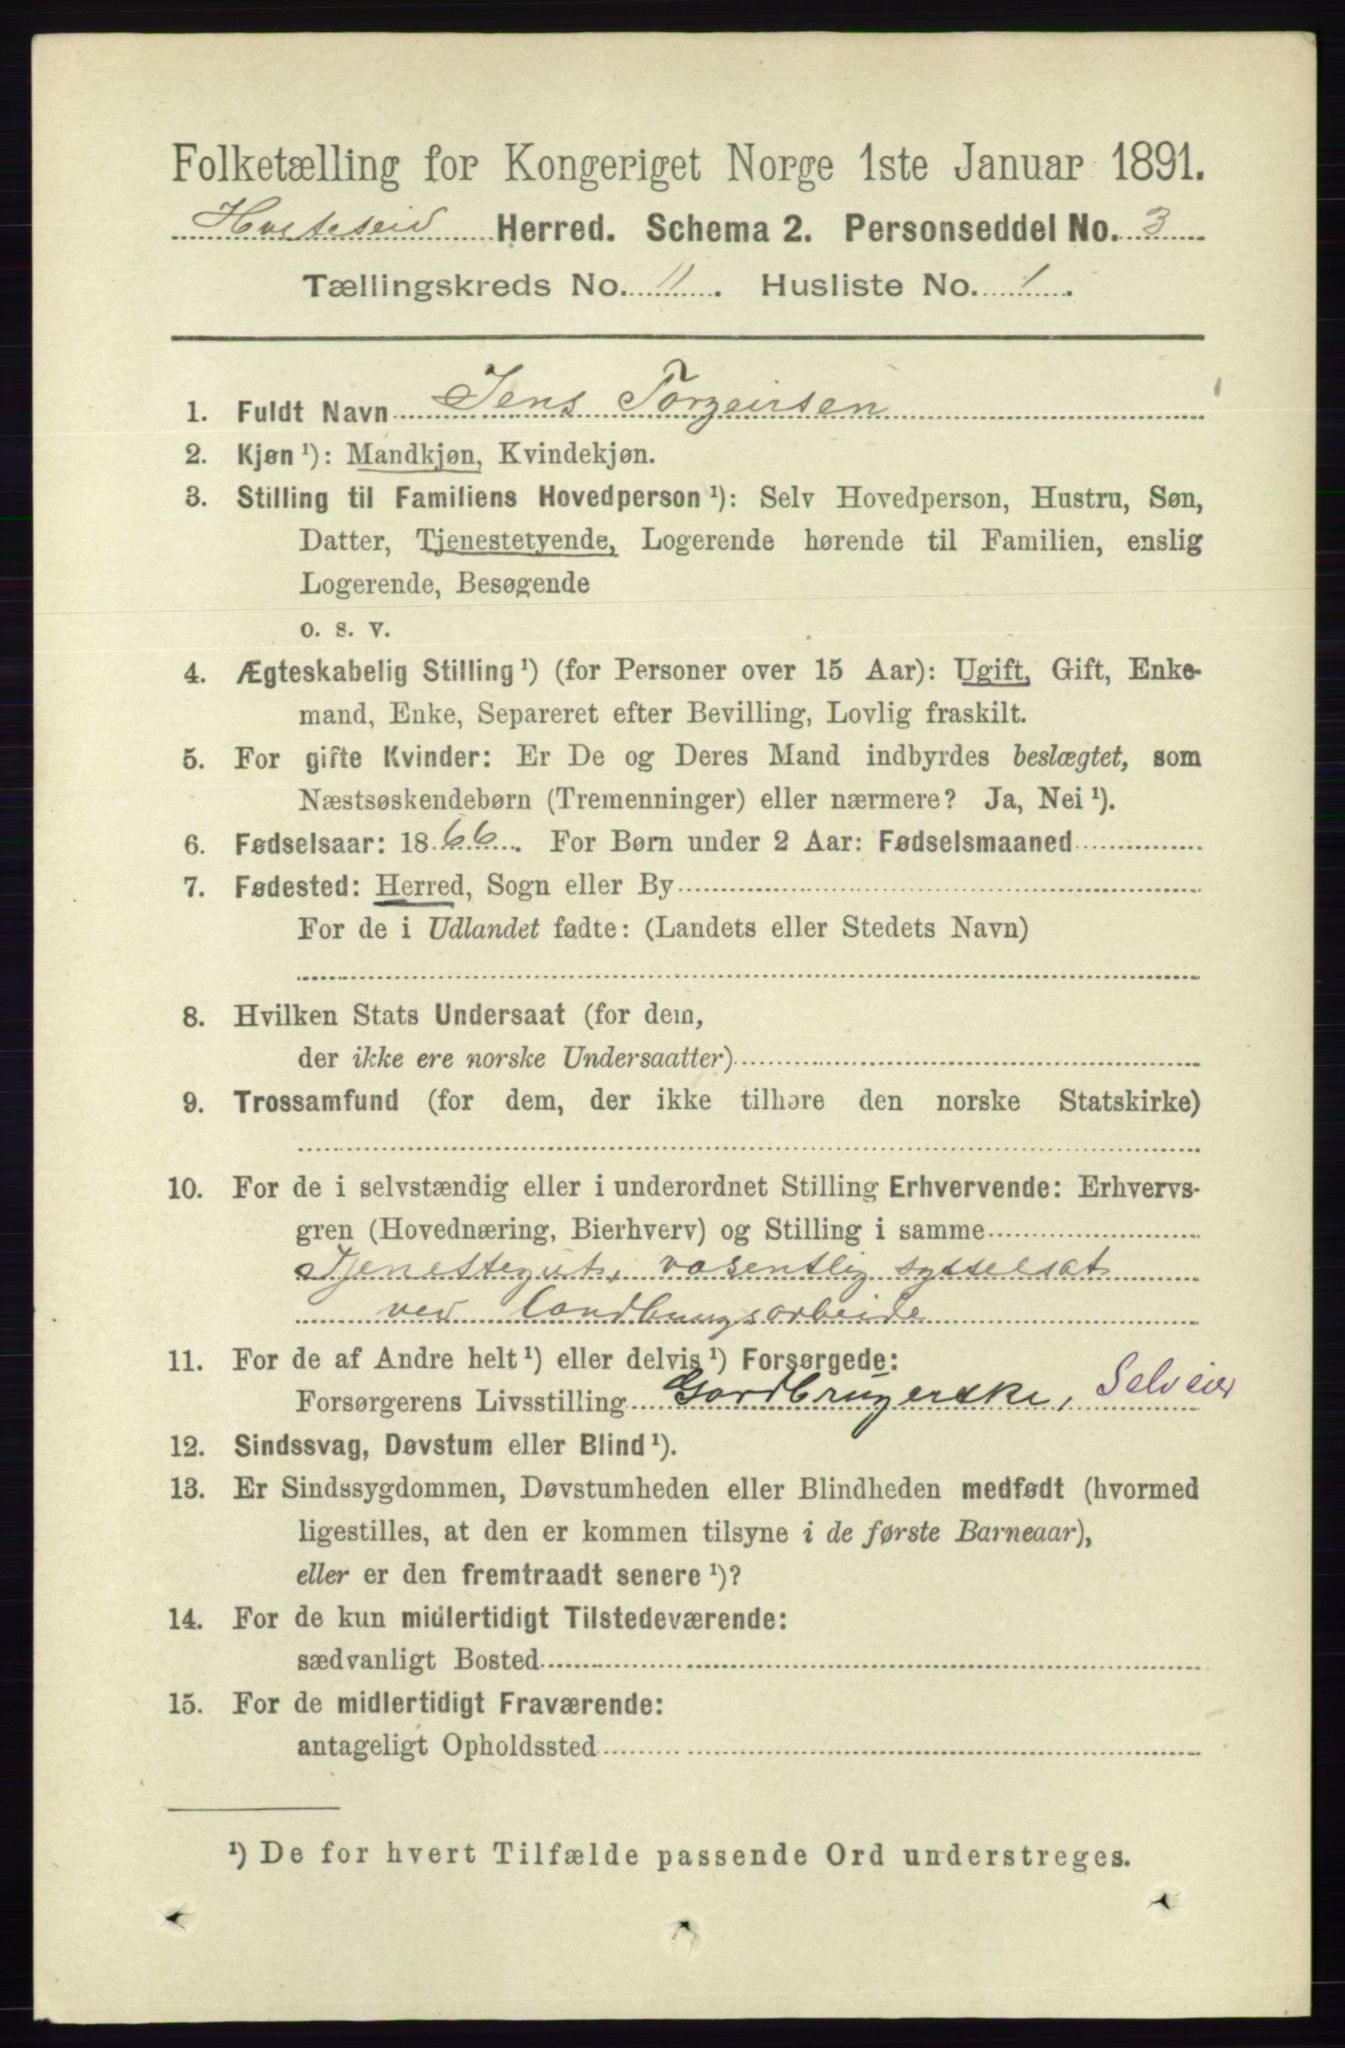 Folketælling for Kongeriget Norge 1ste Januar 1891.
Hviteseid Herred. Schema 2. Personseddel No. 3
Tællingskreds No. 11. Husliste No. 1.
1. Fuldt Navn Jens Torgeirsen
2. Kjøn ¹): Mandkjøn, Kvindekjøn.
3. Stilling til Familiens Hovedperson ¹): Selv Hovedperson, Hustru, Søn,
Datter, Tjenestetyende, Logerende hørende til Familien, enslig
Logerende, Besøgende
o. s. v.
4. Ægteskabelig Stilling ¹) (for Personer over 15 Aar): Ugift, Gift, Enke-
mand, Enke, Separeret efter Bevilling, Lovlig fraskilt.
5. For gifte Kvinder: Er De og Deres Mand indbyrdes beslægtet, som
Næstsøskendebørn (Tremenninger) eller nærmere? Ja, Nei ¹).
6. Fødselsaar: 1866. For Børn under 2 Aar: Fødselsmaaned
7. Fødested: Herred, Sogn eller By
For de i Udlandet fødte: (Landets eller Stedets Navn)
8. Hvilken Stats Undersaat (for dem,
der ikke ere norske Undersaatter)
9. Trossamfund (for dem, der ikke tilhøre den norske Statskirke)
10. For de i selvstændig eller i underordnet Stilling Erhvervende: Erhvervs-
gren (Hovednæring, Bierhverv) og Stilling i samme
Tjenestegut, væsentlig sysselsat
ved Landbrugsarbeide
11. For de af Andre helt ¹) eller delvis ¹) Forsørgede:
Forsørgerens Livsstilling Gardbrugerske, Selveier
12. Sindssvag, Døvstum eller Blind ¹).
13. Er Sindssygdommen, Døvstumheden eller Blindheden medfødt (hvormed
ligestilles, at den er kommen tilsyne i de første Barneaar),
eller er den fremtraadt senere ¹)?
14. For de kun midlertidigt Tilstedeværende:
sædvanligt Bosted
15. For de midlertidigt Fraværende:
antageligt Opholdssted
¹) De for hvert Tilfælde passende Ord understreges.